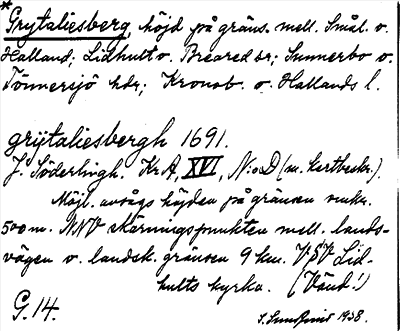 *Grytaliesberg, höjd på gräns. mell. Smål. o.
Halland; Lidhult o. Breared sr; Sunnerbo o.
Tönnersjö hdr; Kronob. o. Hallands l.
grijtaliesbergh 1691.
J. Söderlingh. Kr.A, XVI, N:o D (m. kartbeskr.).
Möjl. avsågs höjden på gränsen omkr.
500 m. NNV skärningspunkten mell. lands-
vägen o. landsk. gränsen 9 km. VSV Lid-
hults kyrka. (Vänd!)
G. 14.
1938.